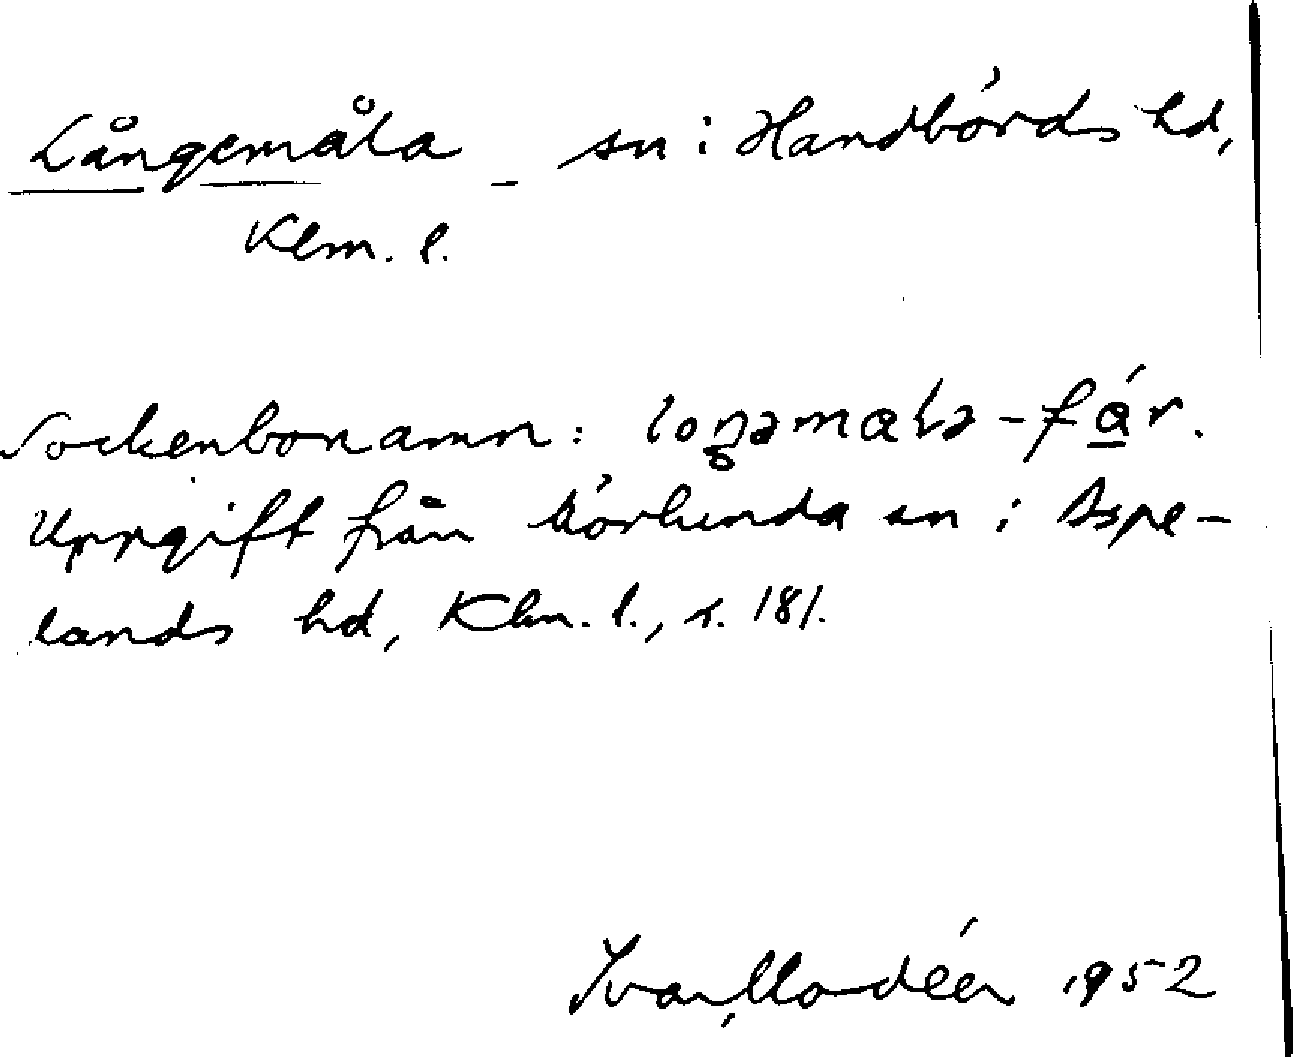 Långemåla sn i Handbörds hd,
Klm. l.
Sockenbonamn: loŋəmala-får.
Uppgift från Mörlunda sn i Aspe-
lands hd, Klm. l., s. 181.
Ivar Modéer 1952